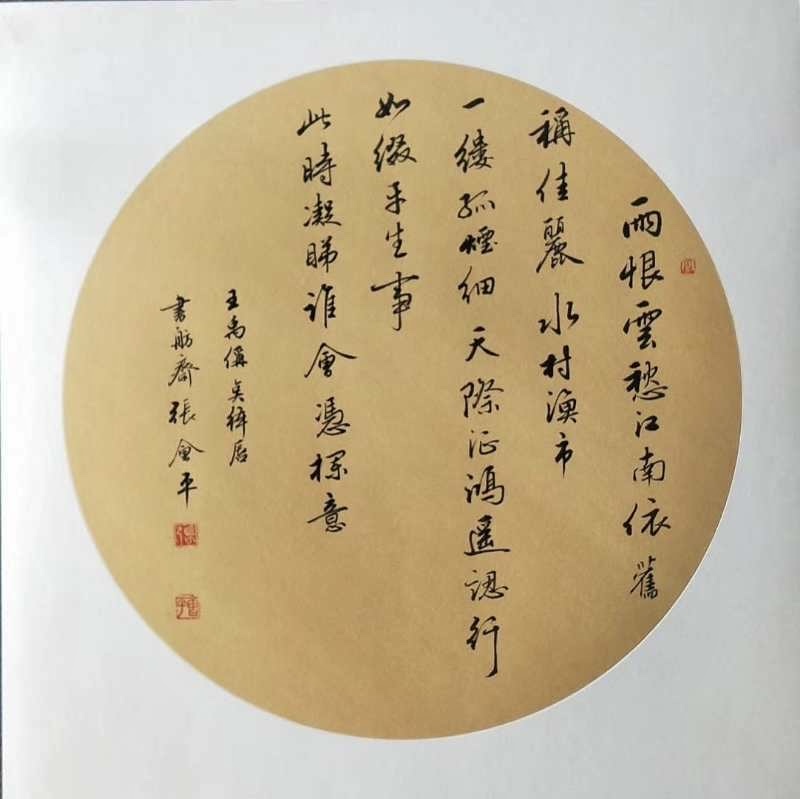 雨恨雲愁江南依舊
稱佳麗水村漁市
一縷孤煙細天際征鴻遥認行
如綴平生事
此時凝睇誰會憑欄意
王禹偁奌絳唇
書舫齋張会平